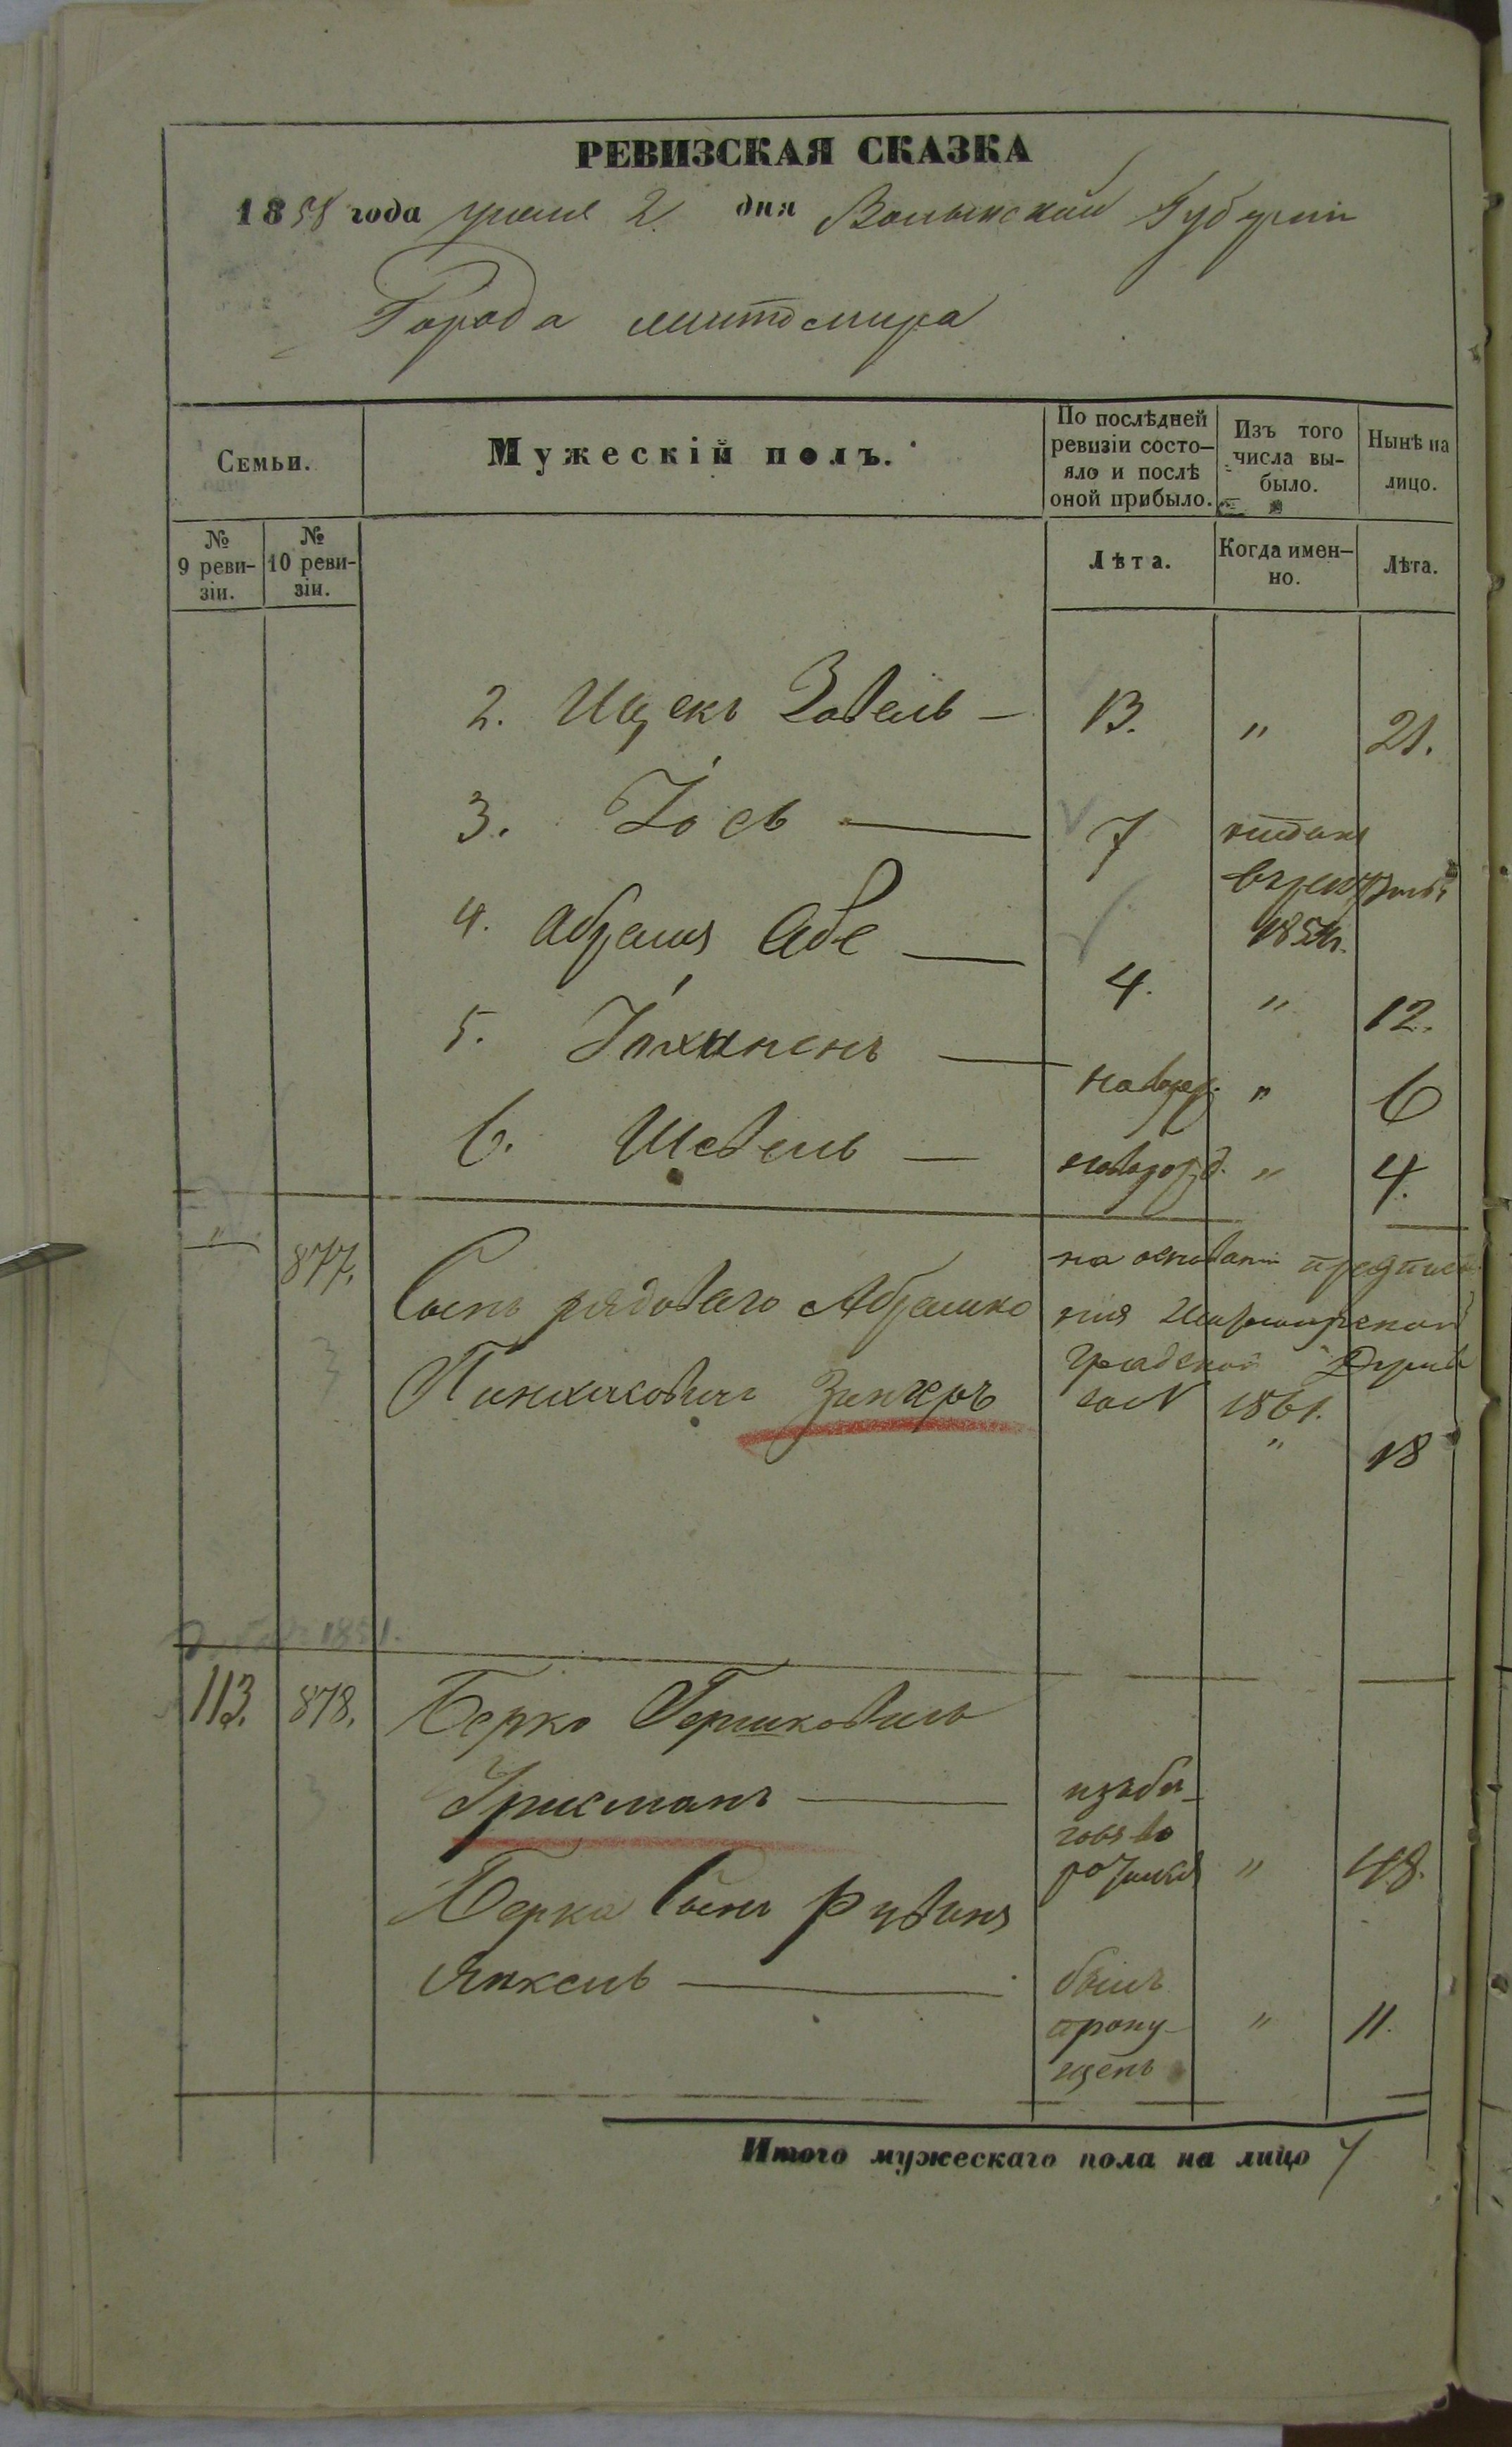 РЕВИЗСКАЯ СКАЗКА
1858 года июня 2 дня Волынской Губерніи
Города Житомира
Семьи.
Мужескій полъ.
По послѣдней ревизіи состо-
яло и послѣ
оной прибыло.
Изъ того
числа вы-
было.
Нынѣ на
лицо.
№
9 реви-
зіи.
№
10 реви-
зіи.
Лѣта.
Когда имен-
но.
Лѣта.
2. Ицекъ Зовель — 13. " 21.
3. Іось — 7 отданъ
в рекруты
185
4. Абрамъ Абе — 4. " 12.
5. Іохиненъ — новорож. " 6
6. Шевель — новорожд. " 4.
" 877. Сынъ рядоваго Абрамко
Пинхасовичъ Зингеръ
на основаніи предписа-
нія Житомирской
Градской Думы
1861. " 18
1851.
113. 878. Берко Гершковичъ
Фрисманъ — изъ бѣ-
говъ во
" 48.
Берка Сынъ Рувинъ
Янкель — былъ
пропу-
щенъ " 11.
Итого мужескаго пола на лицо 7